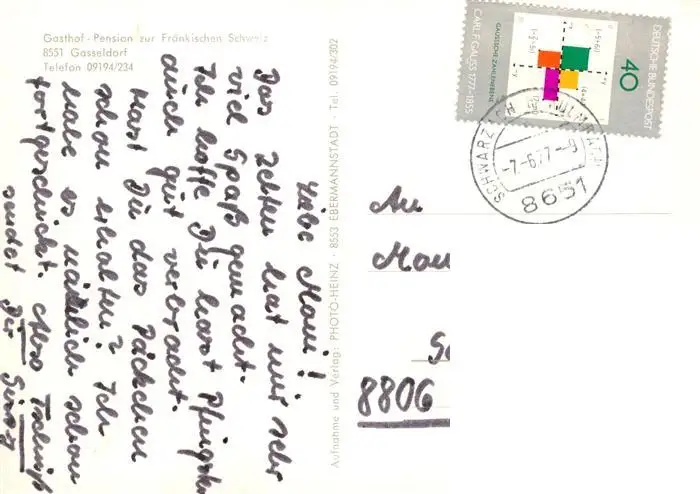 Gasthof - Pension zur Fränkischen Schweiz
8551 Gasseldorf
Telefon 09194/234
Liebe Moni!
Das Zelten hat mir sehr
viel Spaß gemacht.
Ich hoffe Du hast Pfingsten
auch gut verbracht.
Hast Du das Päckchen
schon erhalten? Ich
habe es nämlich schon
fortgeschickt. Also Tschüß
sendet Dir
Aufnahme und Verlag: PHOTO-HEINZ · 8553 EBERMANNSTADT · Tel. 09194/302
DEUTSCHE BUNDESPOST
40
GAUSSSCHE ZAHLENEBENE
CARL F. GAUSS 1777-1855
SCHWARZACH B KULMBACH
-7.-6.77-9
8651
An
Mon
8806